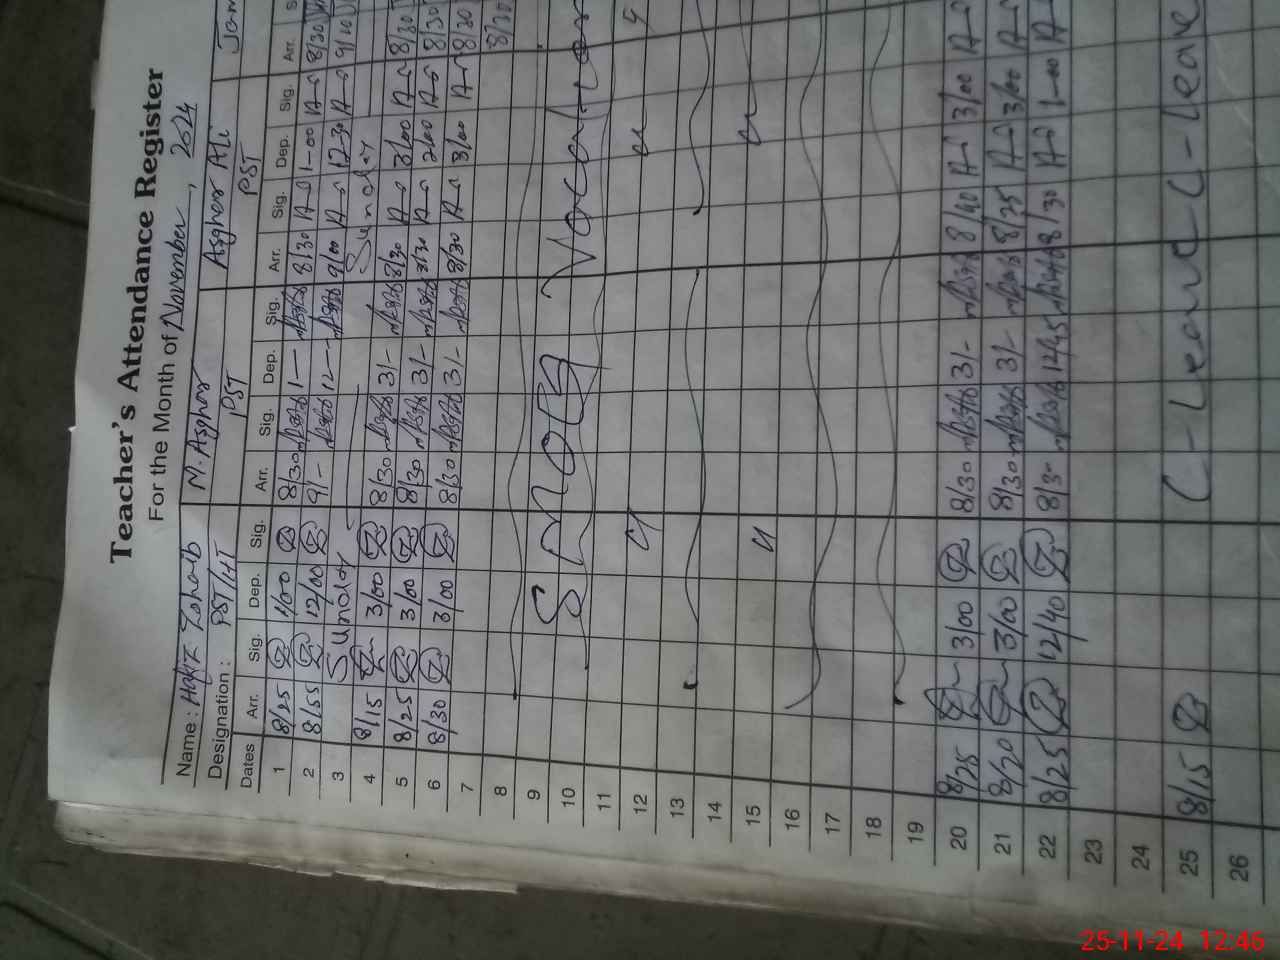 Teacher's Attendance Register
For the Month of November, 2024
Name: Hafiz Zohaib M. Asghar Asghar Ali Jam
Designation: PST/HT PST PST
Dates Arr. Sig. Dep. Sig. Arr. Sig. Dep. Sig. Arr. Sig. Dep. Sig. Arr. S
1 8/25 1/00 8/30 1— 8/30 1-00 8/30
2 8/55 12/00 9/- 12-- 9/00 12-30 9/00
3 Sunday Sunday
4 8/15 3/00 8/30 3/- 8/30 3/00 8/30
5 8/25 3/00 8/30 3/- 8/30 2/00 8/30
6 8/30 3/00 8/30 3/- 8/30 3/00 8/30
7 8/30
8
9
10 Smog Vacations
11
12 " " "
13
14
15 " "
16
17
18
19
20 8/25 3/00 8/30 3/- 8/40 3/00
21 8/20 3/00 8/30 3/- 8/25 3/00
22 8/25 12/40 8/30 12/45 8/30 1-00
23
24
25 8/15 C-Leave C-Leave
26
25-11-24 12:46